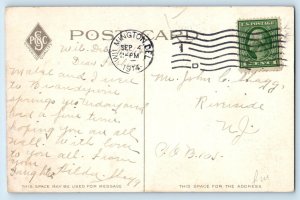 POST CARD
PSC
WILMINGTON, DEL.
SEP 4
PM
1914
1
D
U.S. POSTAGE
1 CENT 1
Wil. Del
Dear
and I went
to Brandywine
springs yesterday and
had a fine time
Hoping you are all
well. With love
to you all. From
your
daughter Hilda
Mr. John C.
Riverside
N.J.
THIS SPACE MAY BE USED FOR MESSAGE.
THIS SPACE IS FOR THE ADDRESS.